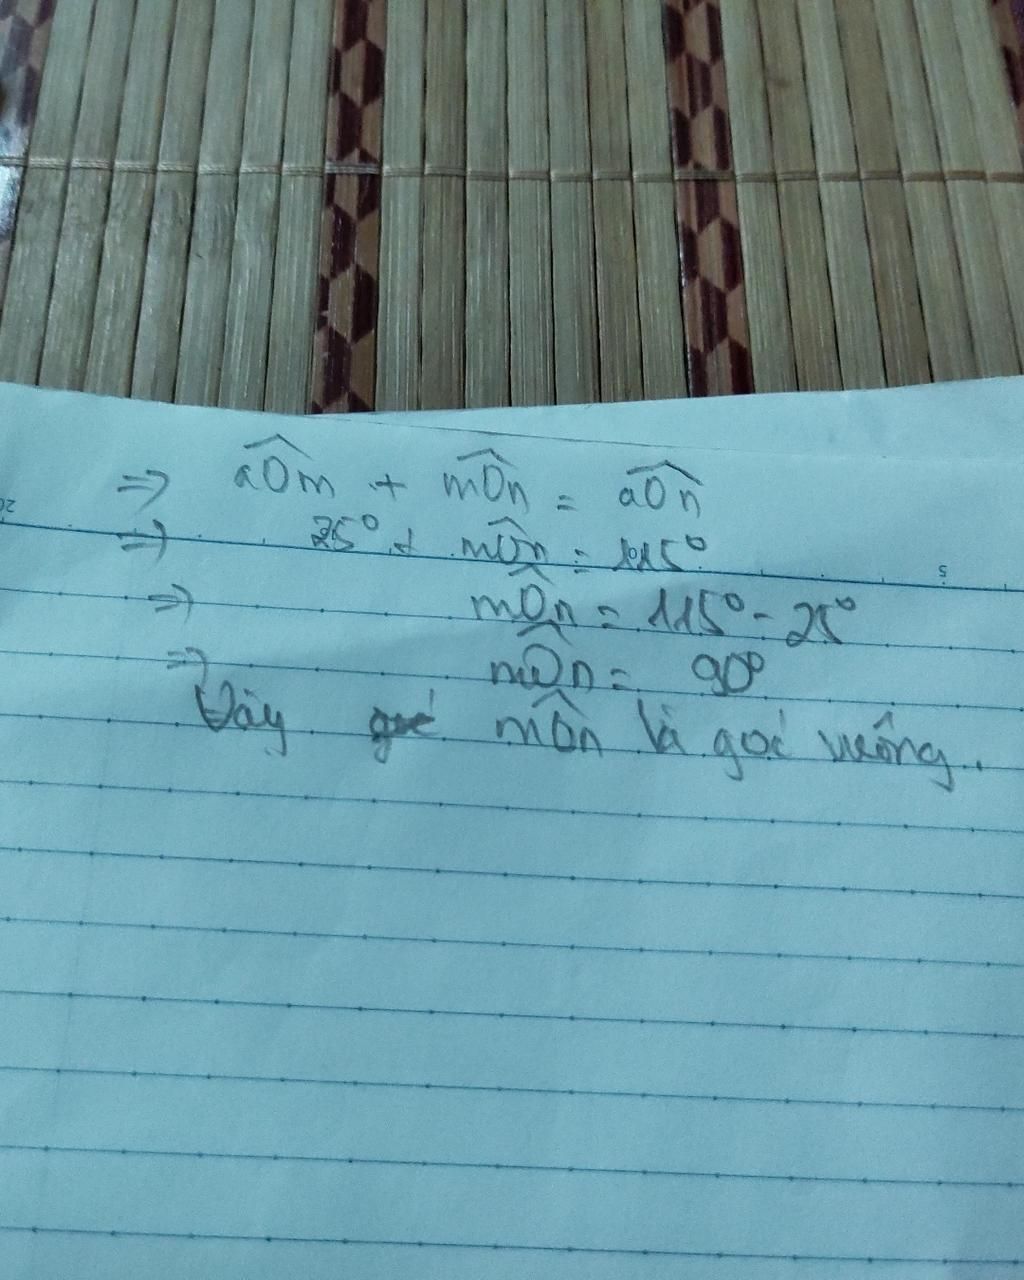 ⇒ aOm + mOn = aOn
⇒ 25° + mOn = 115°
⇒ mOn = 115° - 25°
⇒ mOn = 90°
Vậy mOn là góc vuông.
5
20